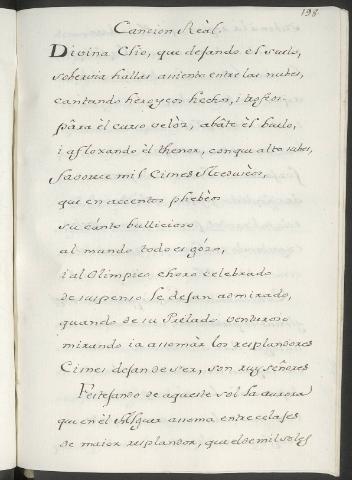 198
Cancion Reàl.
Divina Clio, que dejando èl suelo,
sobervia hallas assiento entre las nubes,
cantando heroycos hechos, i trofeos
pàra èl curso velòz, abàte èl buelo,
i afloxando èl thenor, con que alto subes,
favorece mil Cisnes
que en accentos phebèos
su cànto bullicioso
al mundo todo es gòzo,
i al Olimpico choro celebrado
de suspenso le dejan admirado,
quando de su Prelado venturoso
mirando ia assomàr los resplandores
Cisnes dejan de ser, son ruyseñores
Festejando de aqueste sol la aurora
que en èl assoma entre celajes
de maior resplandor, que el de mil soles